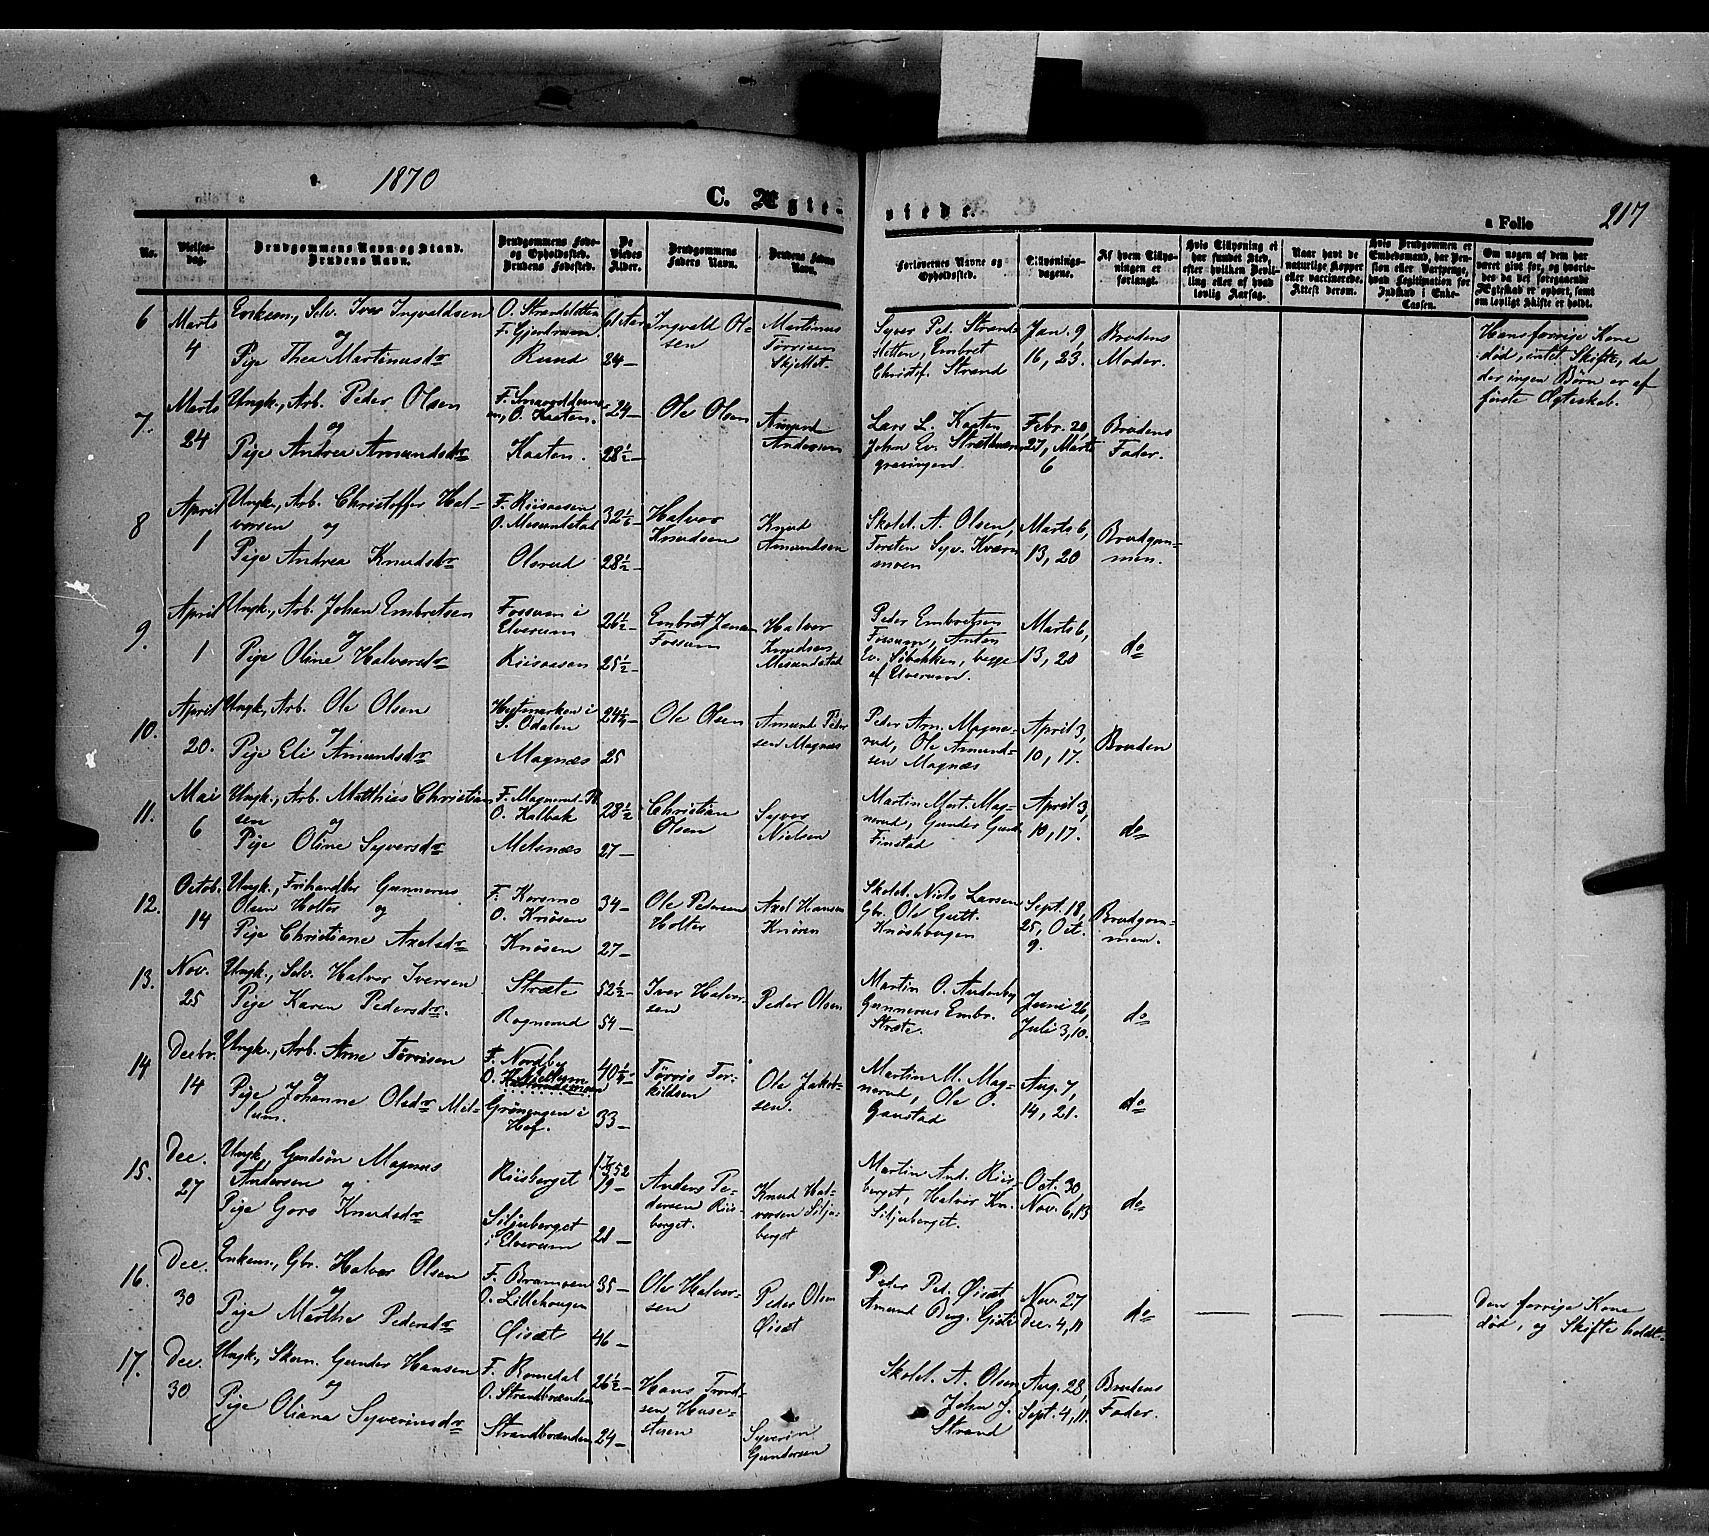 1870
C. Ægte-
viede.
a Folio
217
No.
Vielses-
dag.
Brudgommens Navn og Stand.
Brudens Navn.
Brudgommens Føde-
og Opholdssted.
Brudens Fødested.
De
Viedes
Alder.
Brudgommens
Faders Navn.
Brudens Faders
Navn.
Forlovernes Navne og
Opholdssted.
Tillysnings-
dagene.
Af hvem Tillys-
ningen er
forlangt.
Hvis Tillysning ei
har fundet Sted,
efter hvilken Bevil-
ling eller af hvad
lovlig Aarsag.
Naar havt de
naturlige Kopper
eller vaccinerede.
Attest derom.
Hvis Brudgommen er
Embedsmand, har Pen-
sion eller Vartpenge,
hvad Legitimation for
Indskud i Enke-
Cassen.
Om nogen af dem har
været gift før, og hvorle-
des da det foregaaende
Ægteskab er ophørt, samt
om lovligt Skifte er holdt.
6
Marts
4
Enkem., Selv. Iver Ingvaldsen
og
Pige Thea Martinusdr
O. Strandsletten
F. Gjerdrum
Ruud
61 Aar
24 —
Ingvald Ol-
sen
Martinus
Tørrisen
Skjellet
Syver Ped. Strand-
sletten, Embret
Christof. Strand
Jan. 9,
16, 23.
Brudens
Moder.
Hans forrige Kone
død, intet Skifte, da
der ingen Børn er af
første Ægteskab.
7.
Marts
24
Ungk., Arb. Peder Olsen
og
Pige Andrea Amundsdr
O. Kaaten.
Kaaten.
24 —
28½ —
Ole Olsen
Amund
Andersen
Lars L. Kaaten
John Ev.
Febr. 20,
27, Marts
6
Brudens
Fader.
8
April
1
Ungk., Arb. Christoffer Hal-
vorsen og
Pige Andrea Knudsdr
F. Riisaasen
O. Mesundstad
Olsrud
32½ —
28½ —
Halvor
Knudsen
Knud
Amundsen
Skolel. A. Olsen,
Torsten Syv. Kværn-
moen
Marts 6,
13, 20
Brudgom-
men.
9.
April
1
Ungk., Arb. Johan Embretsen
og
Pige Oline Halvorsdr
Fossum i
Elverum
Riisaasen
26½ —
25½ —
Embret Jensen
Fossum
Halvor
Knudsen
Mesundstad
Peder Embretsen
Fossum, Anton
Ev. Sibekken, begge
af Elverum.
Marts 6,
13, 20
do
10.
April
20.
Ungk., Arb. Ole Olsen
og
Pige Eli Amundsdr
S. Odalen
Magnæs
24½ —
25
Ole Olsen
Amund Peder-
sen Magnæs
Peder Am. Magne-
rud, Ole Amund-
sen Magnæs
April 3,
10, 17.
Bruden
11.
Mai
6
Ungk., Arb. Matthias Christian-
sen
og
Pige Oline Syversdr
O. Kalbak
Melsnæs
28½
27 —
Christian
Olsen
Syver
Nielsen
Martin Mort. Mag-
nerud, Gunder Gund.
Finstad
April 3,
10, 17.
do
12.
Octob.
14
Ungk., Frihandler Gunnerus
Olsen Holter og
Pige Christiane Axelsdr
F. Korsmo
O. Knösen
Knösen
34 —
27 —
Ole Pedersen
Holter
Axel Hansen
Knösen
Skolel. Niels Larsen
Gbr. Ole Gutt.
Knöshaugen
Sept. 18,
25, Oct.
9.
Brudgom-
men.
13.
Nov.
25
Ungk., Selv. Halvor Iversen
Pige Karen Pedersdr.
Stræte
Rognerud
52½ —
54 —
Iver Halvor-
sen
Peder Olsen
Martin O. Anderby
Gunnerus Embr.
Stræte.
Juni 26,
Juli 3, 10.
do
14
Decbr.
14
Ungk., Arb. Arne Tørrisen
og
Pige Johanne Olsdr Mel-
lum.
F. Nordby
Grönengen i
Hof.
40½ —
33 —
Tørris Tor-
kildsen
Ole Jakob-
sen.
Martin M. Mag-
nerud, Ole O.
Gaustad
Aug. 7,
14, 21.
do
15.
Dec.
27
Ungk., Gmdsön Magnus
Andersen og
Pige Goro Knudsdr
Riisberget
Siljuberget
i Elverum
19 —
21 —
Anders Pe-
dersen Riis-
berget.
Knud Hal-
vorsen Silju-
berget
Martin And. Riis-
berget, Halvor Kn.
Siljuberget.
Oct. 30
Nov. 6, 13
do
16.
Dec.
30
Enkem., Gbr. Halvor Olsen
og
Pige Marthe Pedersdr
F. Bramoen
O. Lillehougen
Öisæt
35 —
46 —
Ole Halvor-
sen
Peder Olsen
Öisæt
Peder Ped. Öisæt
Amund Berg.
Nov. 27
Dec. 4, 11
do
Den forrige Kone
død, og Skifte holdt.
17.
Dec.
30
Ungk., Skom. Gunder Hansen
og
Pige Oliana Syverinsdr
F. Romedal
O. Strandbrænden
Strandbrænden
26½ —
24 —
Hans Trond-
sen Huse-
stuen
Syverin
Gundersen
Skolel. A. Olsen,
John J.
Strand
Aug. 28,
Sept. 4, 11.
Brudens
Fader.